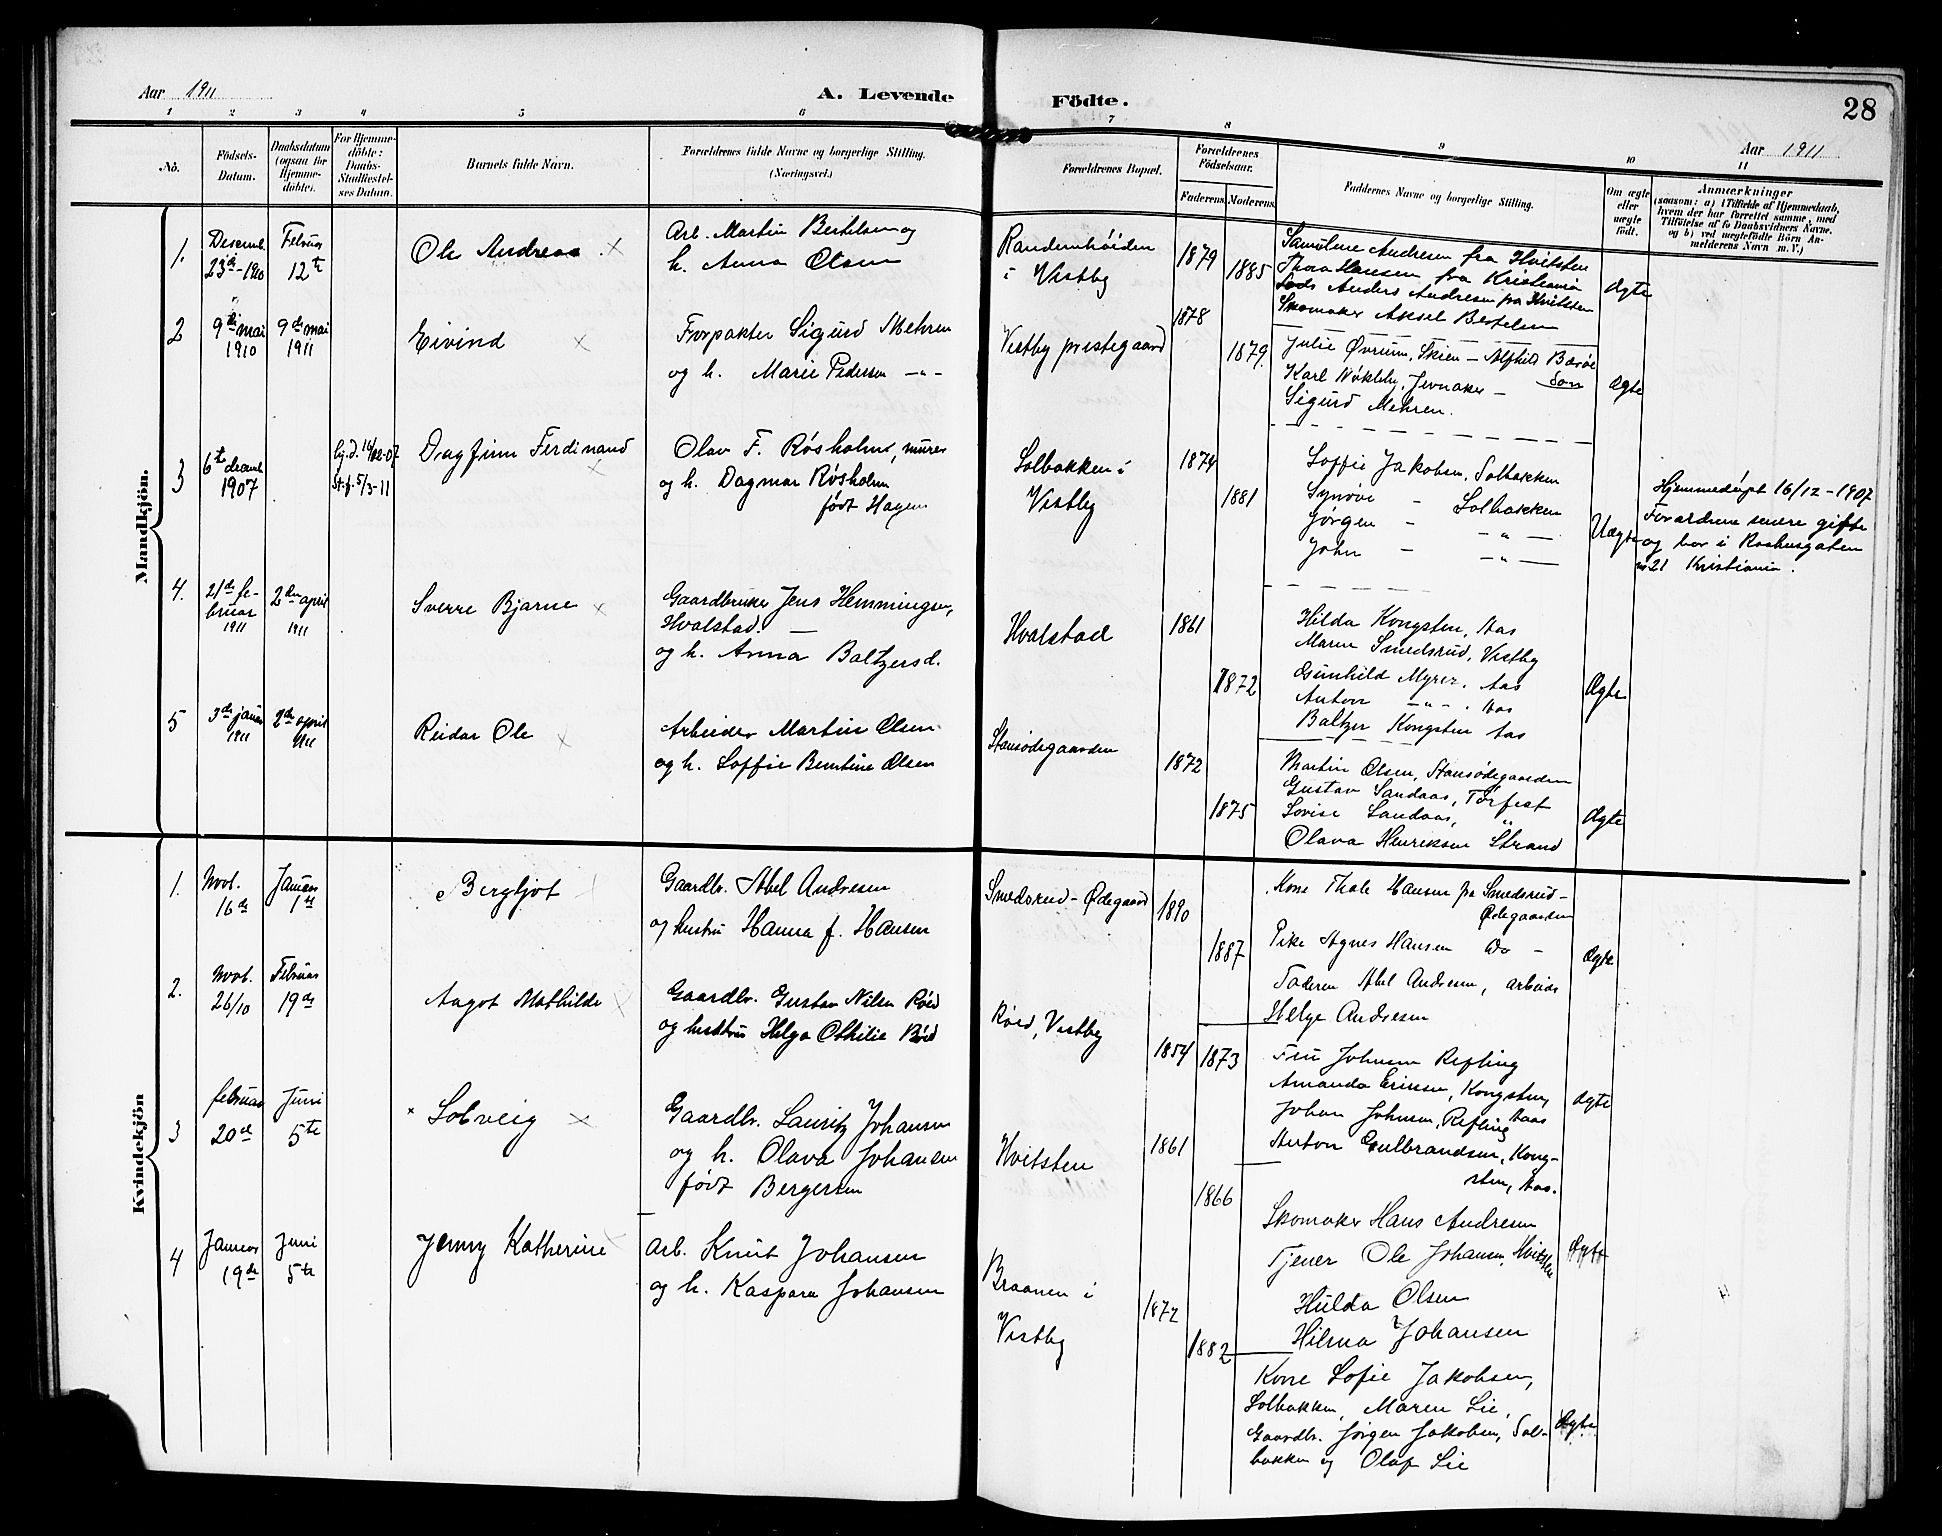 Aar 1911
A. Levende Födte.
28
Aar 1911
1 2 3 4 5 6 7 8 9 10 11
No.
Födsels-Datum.
Daabsdatum (ogsaa for Hjemme-döbte).
For Hjemme-döbte: Daabs-Stadfæstel-ses Datum.
Barnets fulde Navn.
Forældrenes fulde Navne og borgerlige Stilling.
(Næringsvei.)
Forældrenes Bopæl.
Forældrenes Födselsaar.
Faderens. Moderens.
Faddernes Navne og borgerlige Stilling.
Om ægte eller uægte födt.
Anmærkninger
(saasom: a) i Tilfælde af Hjemmedaab,
hvem der har forrettet samme, med
Tilföielse af to Daabsvidners Navne,
og b) ved uægtefödte Börn An-
melderens Navn m. V.)
Mandkjön.
1. Desemb. 23de-1910
Februar 12te
Ole Andreas
Arb. Martin Bertelsen og
h. Anna Olsen
Randemhöiden
i Vestby
1879
1885
Andresen fra Hvitsten
Thora Hansen fra Kristiania
Lods Anders Andresen fra Hvitsten
Skomaker Aksel Bertelsen
Ægte
2 9de mai 1910
9de mai 1911
Eivind
Forpakter Sigurd Mehren
og h. Marie Pedersen —"—
Vestby prestegaard
1878
1879.
Julie Øvrum, Skien — Alfhild Barøe
Karl Nøkleby, Jevnaker — Son
Sigurd Mehren.
Ægte
3 6te decemb 1907
hj.d. 16/12-07
St.f. 5/3-11
Dagfinn Ferdinand
Olav F. Røsholm, murer
og h. Dagmar Røsholm
født Hagen
Solbakken i
Vestby
1874
1881
Soffie Jakobsen, Solbakken
Synøve — Solbakken
Jørgen — —"—
John — —"—
Uægte
Hjemmedøpt 16/12-1907
Forældrene senere gifte
og bor i Raahusgaten
nr 21 Kristiania.
4. 21de februar 1911
2den april 1911
Sverre Bjarne
Gaardbruker Jens Hemmingsen,
Hvalstad. —
og h. Anna Baltzersd.
Hvalstad
1861
1872
Hilda Kongsten, Aas
Maren Smedsrud, Vestby
Gunhild Myrer, Aas
Anton —"— , Aas
Baltzer Kongsten Aas
Ægte
5 3de januar 1911
2de april 1911
Reidar Ole
Arbeider Martin Olsen
og h. Soffie Berntine Olsen
Stamsødegaarden
1872
1875
Martin Olsen, Stamsødegaarden
Gustav Sandaas, Torfest
Lovise Sandaas, "
Olava Henriksen Strand
Ægte
Kvindekjön
1. Novb. 16de
Januar 1ste
Bergljot
Gaardbr. Abel Andresen
og hustru Hanna f. Hansen
Smedsrud-Ødegaard
1890
1887
Kone Thale Hansen fra Smedsrud-
Ødegaarden
Pike Agnes Hansen Do —
Faderen Abel Andresen, arbeider
Helge Andresen
Ægte
2. Novb. 26/10
Februar 19de
Aagot Mathilde
Gaardbr. Gustav Nilsen Røed
og hustru Helga Othilie Røed
Røed, Vestby
1854
1873
Fru Johnsen Refling
Amanda Eriksen, Kongsten,
Aas
Johan Johnsen, Refling
Anton Gulbrandsen, Kong-
sten, Aas.
Ægte
3 februar 20de
Juni 5te
Solveig
Gaardbr. Lauritz Johansen
og h. Olava Johansen
født Bergersen
Hvitsten
1861
1866
Skomaker Hans Andresen
Tjener Ole Johansen, Hvitsten
Hulda Olsen
Hilma Johansen
Ægte
4 Januar 19de
Juni 5te
Jenny Katherine
Arb. Knut Johansen
og h. Kaspara Johansen
Braanen i
Vestby
1872
1882
Kone Sofie Jakobsen,
Solbakken, Maren Lie,
Gaardbr. Jørgen Jakobsen, Sol-
bakken og Olaf Lie
Ægte